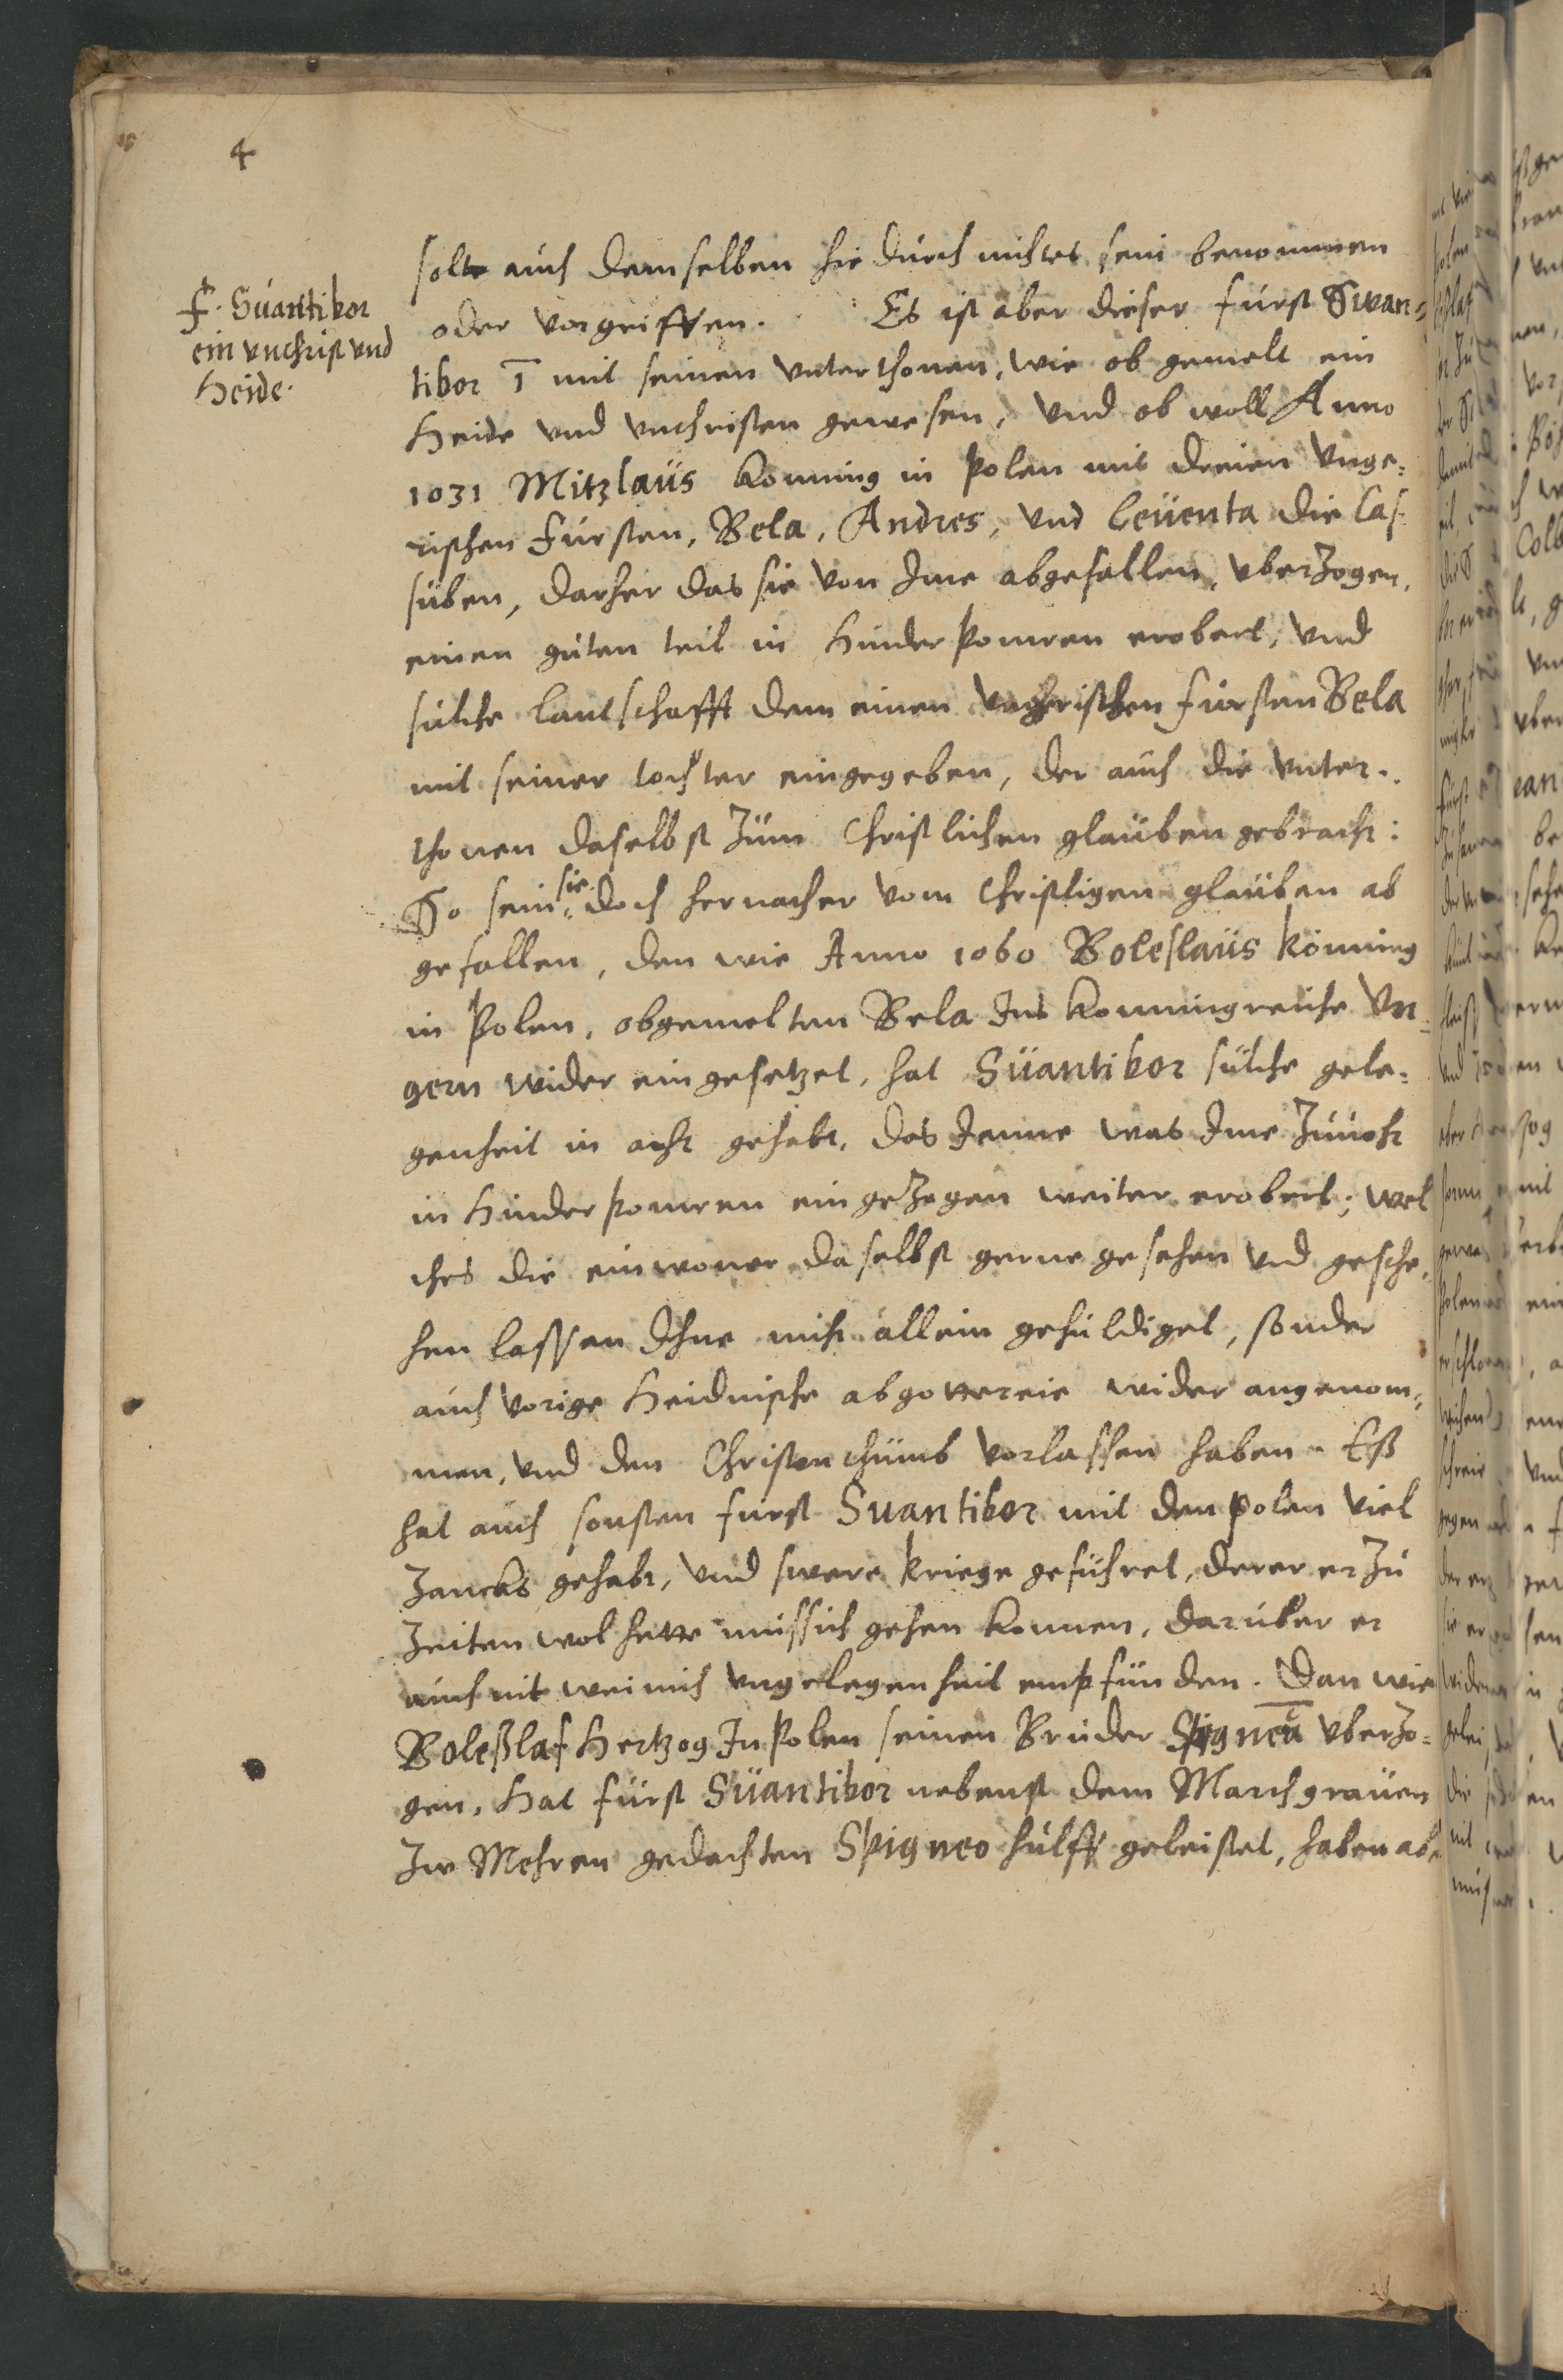 4
F. Suantibor
ein vnchrist vnd
Heide.
solte auch demselben hiedurch nichtes sein benommen
oder vorgriffen. Es ist aber dieser fürst Swan=
tibor 1 mit seinen vnterthonen, wie ob gemelt ein
Heide vnd vnchristen gewesen, vnd ob woll Anno
1031 Mitzlaüs Konning in Polen mit dreien Vnge=
rischen fürsten, Bela, Andres, vnd Leüenta die Cas
süben, daher das sie von Ime abgefallen, vberzogen,
einen güten teil in Hinder Pomren erobert, vnd
sülche Lantschafft dem einen vngerischen fürsten Bela
mit seiner tochter eingegeben, der auch die vnter=
thonen daselbst züm Christlichen glaüben gebracht:
So sein sie doch hernacher vom Christligen glaüben ab
gefallen, den wie Anno 1060 Boleslaüs Könning
in Polen, obgemelten Bela Ins Konningreiche Vn=
gern wider eingesetzet, hat Süantibor sülche gele=
genheit in acht gehabt, das Jenne was Ime züuohr
in Hinder Pomren eingezogen weiter erobert, wel
ches die einwoner daselbst gerne gesehen vnd gesche,
hen lassen Ihne nicht allein gehüldiget, sonder
auch vorige Heidnische abgottereie wider angenom=
men, vnd den Christenthümb vorlassen haben. Eß
hat auch sonsten fürst Suantibor mit den Polen viel
Zancks gehabt, vnd swere kriege geführet, derer er zü
Zeiten wol hette müssich gehen konnen, darüber er
auch nit weinich vngelegenheit empfünden. Dan wie
Boleßlaf Hertzog In Polen seinen Brüder Spigneü vberzo=
gen, Hat fürst Süantibor nebenst dem Marchgraüen
Zw Mehren gedachten Spigneo hülff geleistet, haben ab